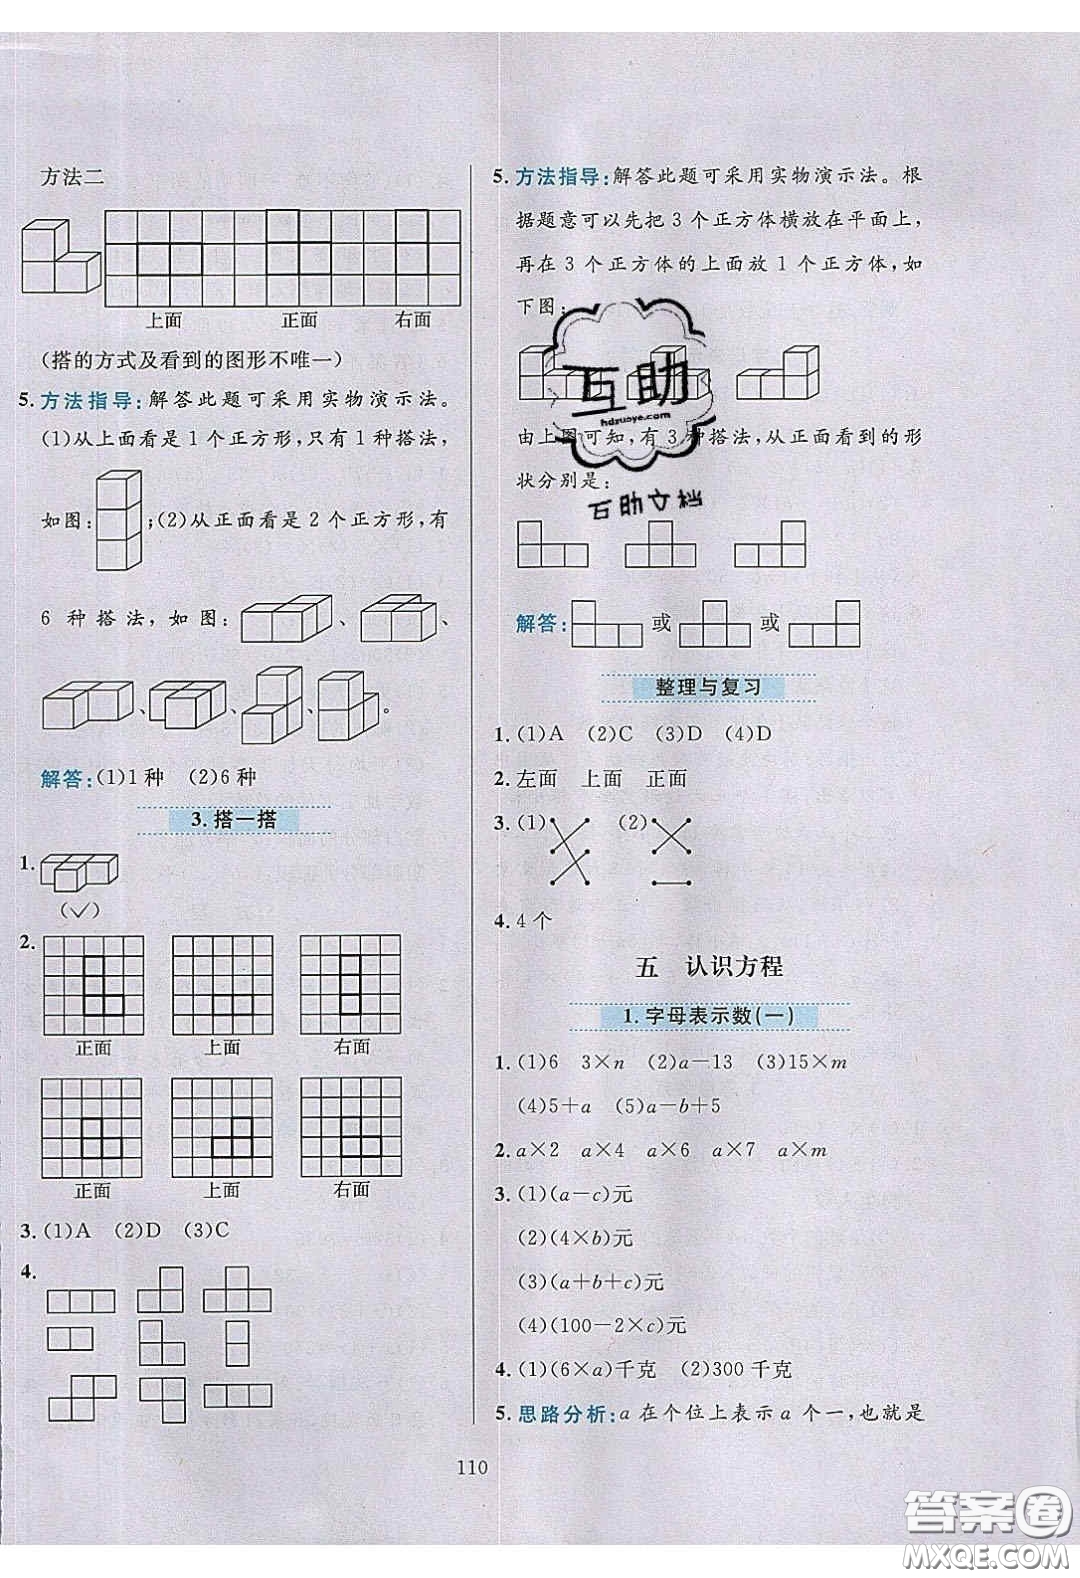 方法二
上面 正面 右面
(搭的方式及看到的图形不唯一)
5. 方法指导:解答此题可采用实物演示法。
(1)从上面看是1个正方形,只有1种搭法,
如图: ;(2)从正面看是2个正方形,有
6种搭法,如图: 、 、
、 、 、 。
解答:(1)1种 (2)6种
3.搭一搭
1.
(✓)
2.
正面 上面 右面
正面 上面 右面
3. (1)A (2)D (3)C
4.
5. 方法指导:解答此题可采用实物演示法。根
据题意可以先把3个正方体横放在平面上,
再在3个正方体的上面放1个正方体,如
下图:
互助
hdzuoye.com
由上图可知,有3种搭法,从正面看到的形
状分别是:
互助文档
解答: 或 或
整理与复习
1. (1)A (2)C (3)D (4)D
2. 左面 上面 正面
3. (1) (2)
4. 4个
五 认识方程
1.字母表示数(一)
1. (1)6 3×n (2)a−13 (3)15×m
(4)5+a (5)a−b+5
2. a×2 a×4 a×6 a×7 a×m
3. (1)(a−c)元
(2)(4×b)元
(3)(a+b+c)元
(4)(100−2×c)元
4. (1)(6×a)千克 (2)300千克
5. 思路分析:a在个位上表示a个一,也就是
110
答案圈
MXQE.COM